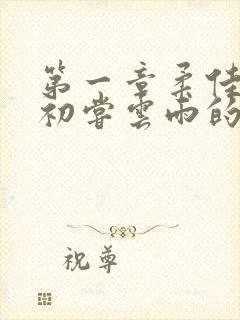 第一章柔佳
初尝云雨的
祝尊